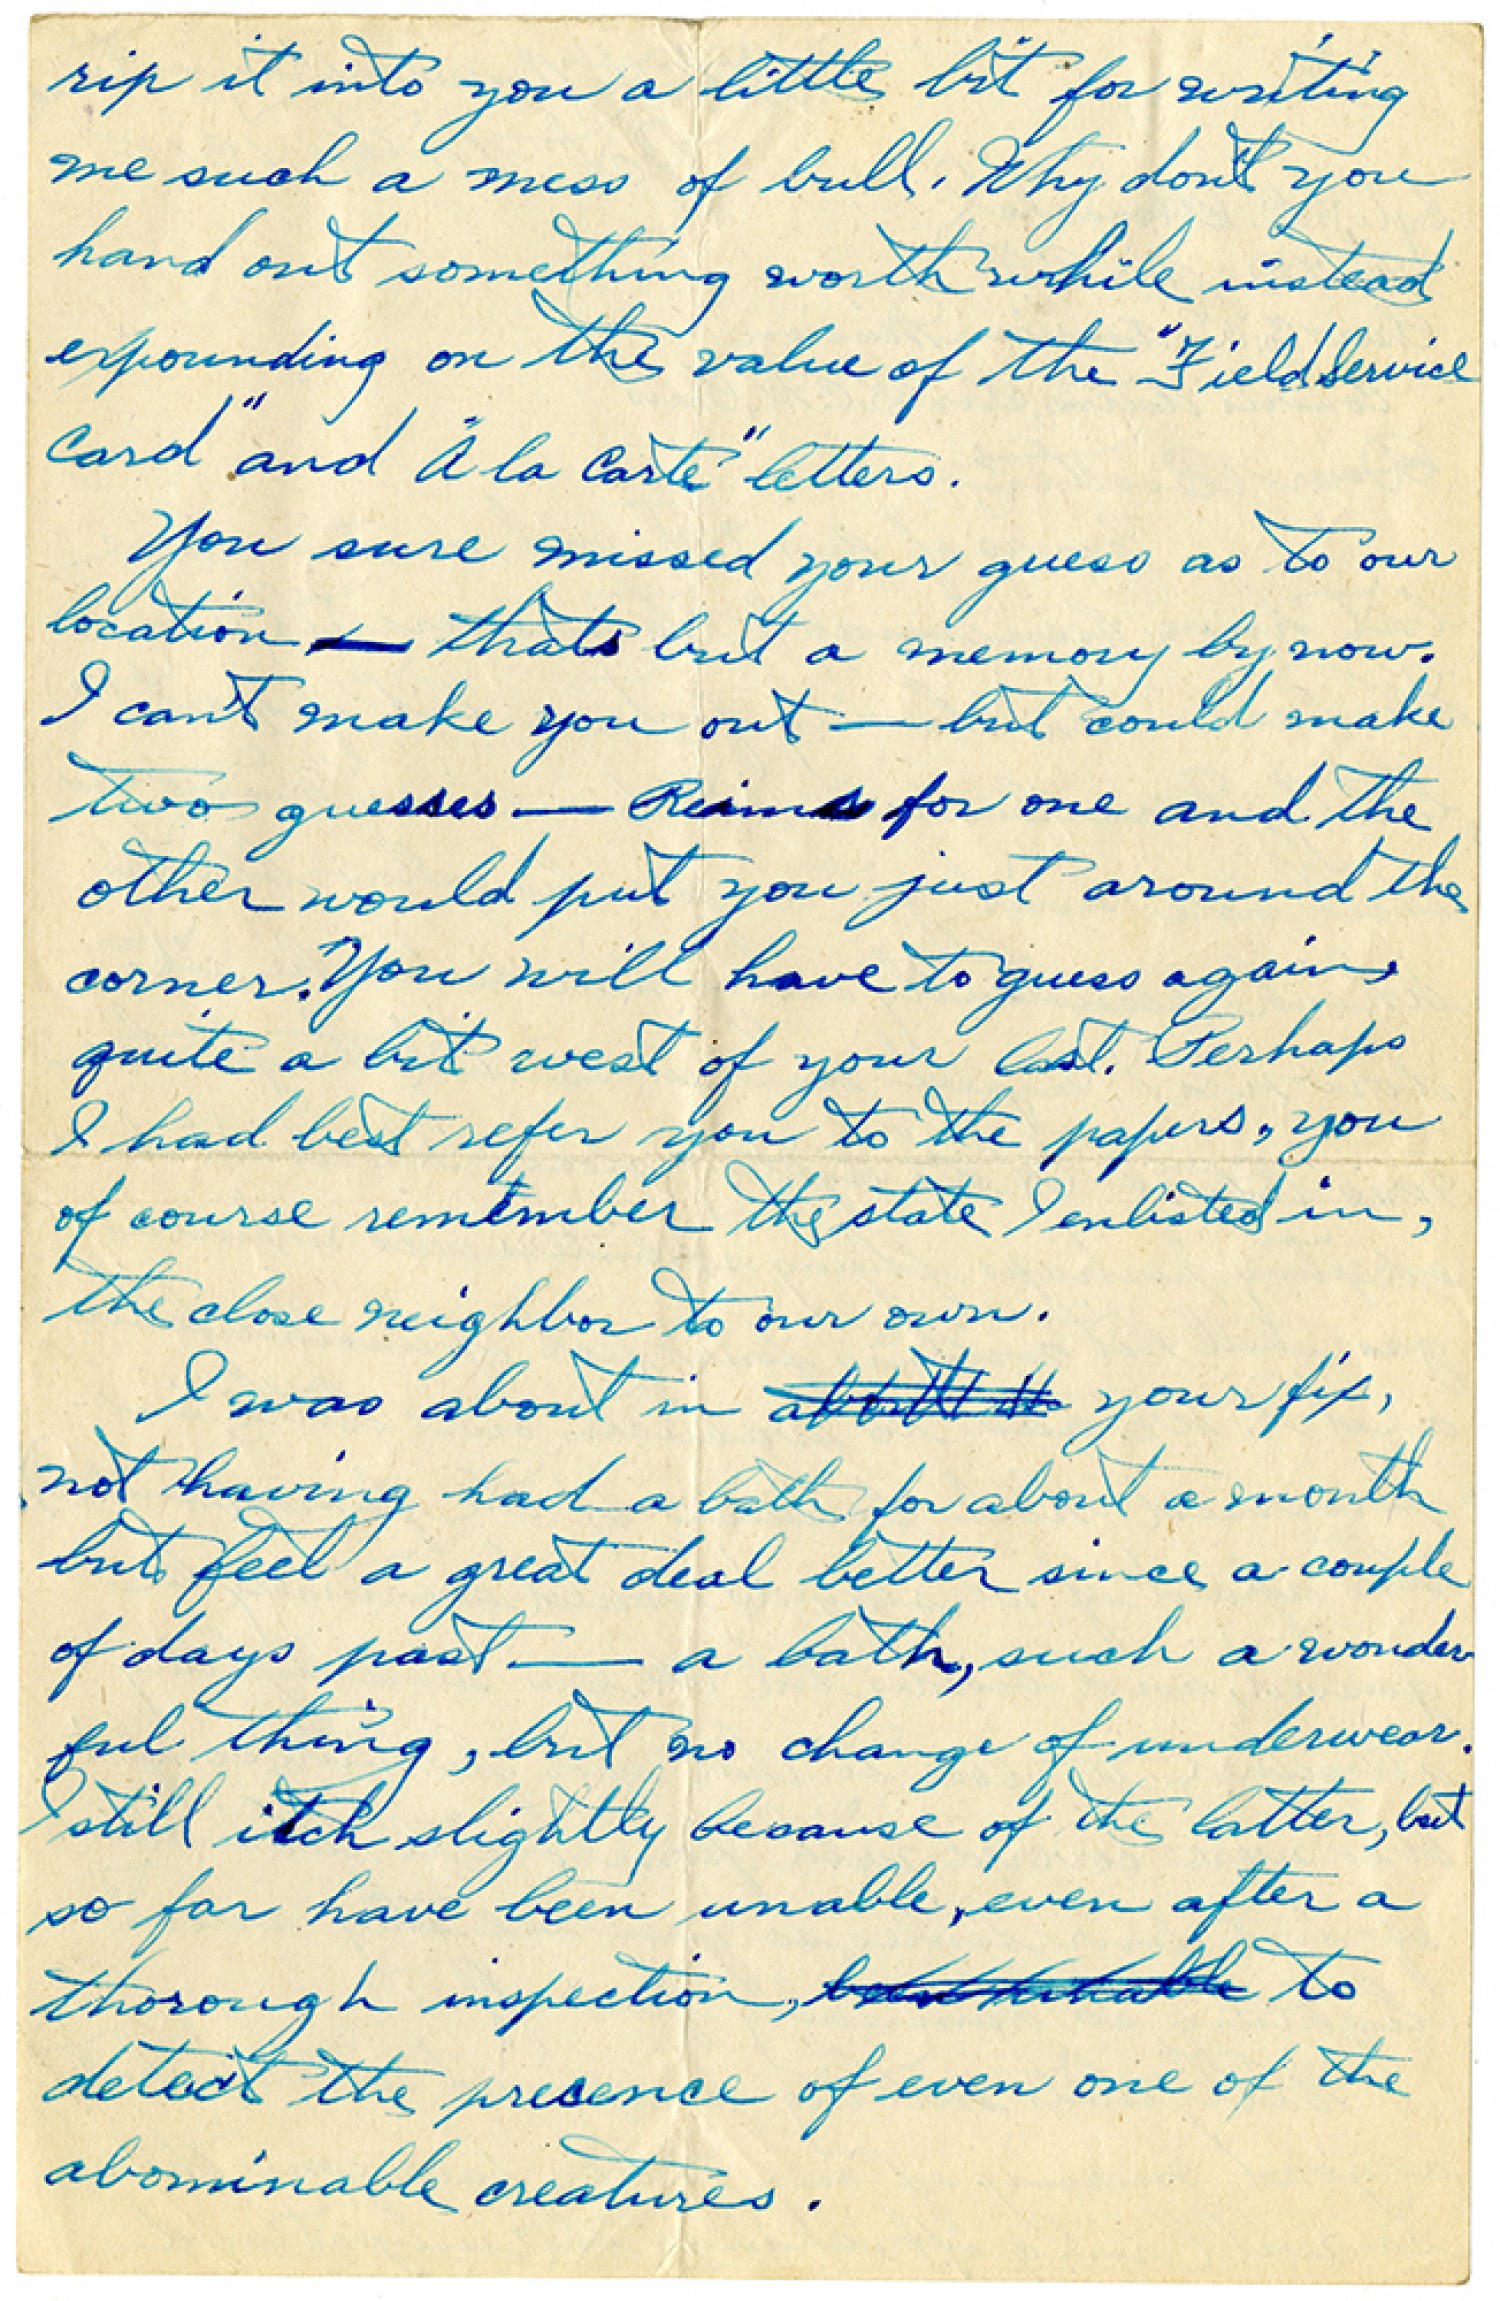 rip it into you a little bit for writing
me such a mess of bull. Why don't you
hand out something worth while instead
expounding on the value of the "Field Service
Card" and "A la Carte" letters.
You sure missed your guess as to our
location — thats but a memory by now.
I can't make you out — but could make
two guesses — Reims for one and the
other would put you just around the
corner. You will have to guess again,
quite a bit west of your last. Perhaps
I had best refer you to the papers, you
of course remember the state I enlisted in,
the close neighbor to our own.
I was about in your fix,
not having had a bath for about a month
but feel a great deal better since a couple
of days past — a bath, such a wonder
ful thing, but no change of underwear.
I still itch slightly because of the latter, but
so far have been unable, even after a
thorough inspection, to
detect the presence of even one of the
abominable creatures.